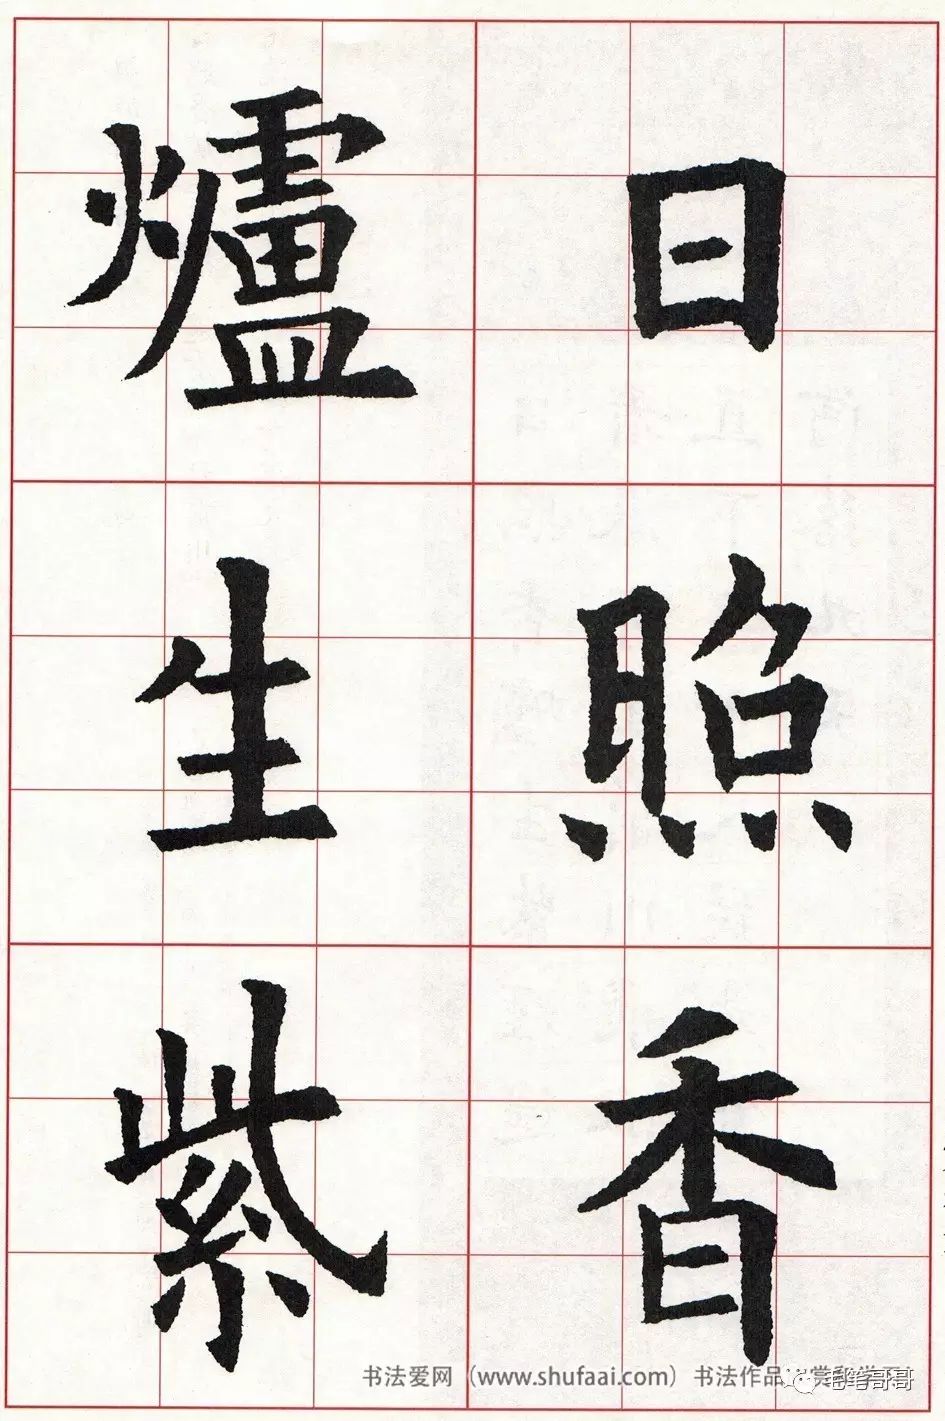 日照香
爐生紫
书法爱网（www.shufaai.com）书法作品
毛笔哥哥